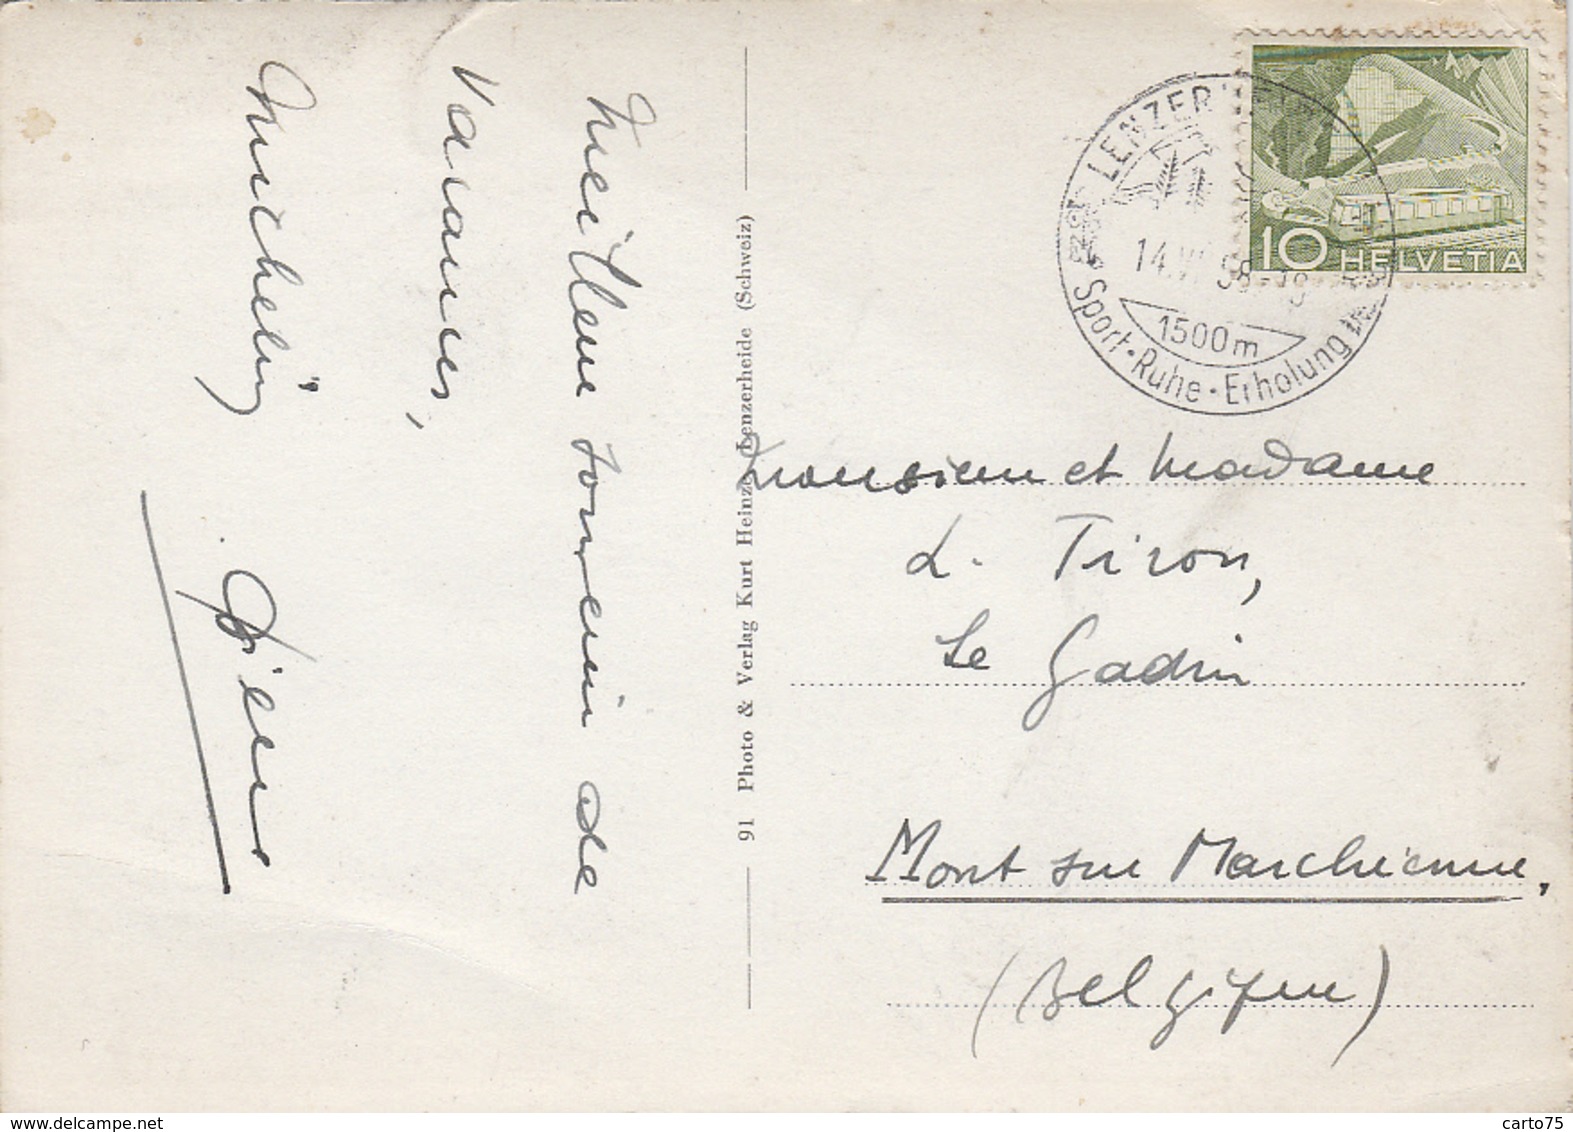 Meilleur souvenir de
Vacances,
91 Photo & Verlag Kurt Heinze, Lenzerheide (Schweiz)
LENZERHEIDE
14.VI 58-18
1500m
Sport · Ruhe · Erholung
10 HELVETIA
Monsieur et Madame
L. Tiron,
Le Gadin
Mont sur Marchienne,
(Belgique)
www.delcampe.net
carto75